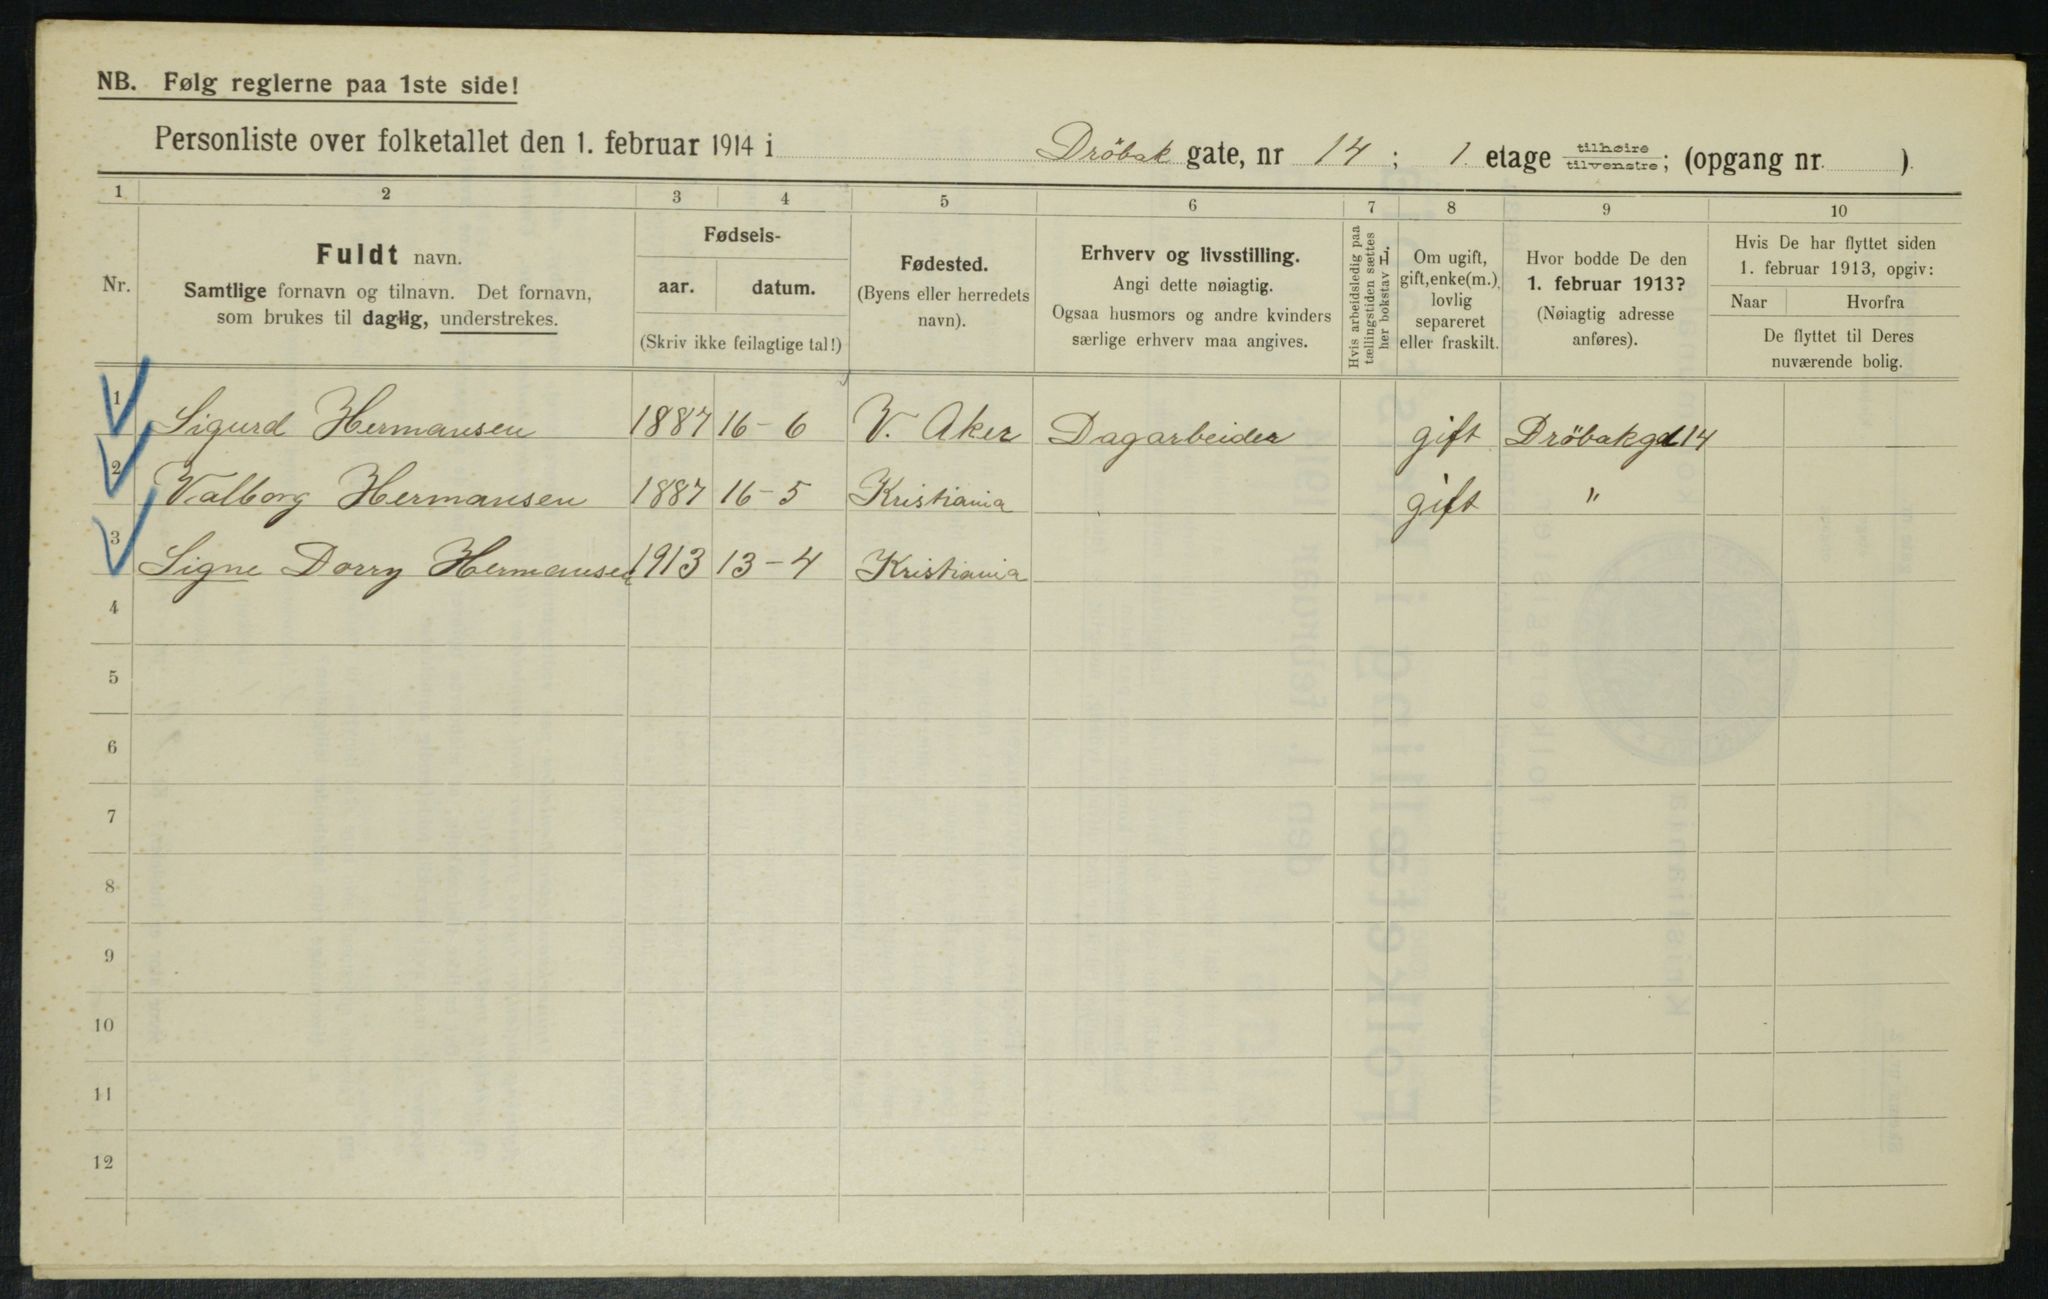 NB. Følg reglerne paa 1ste side!
Personliste over folketallet den 1. februar 1914 i Dröbak gate, nr 14; 1. etage tilhøire tilvenstre; (opgang nr. ).
1 2 3 4 5 6 7 8 9 10
Nr.
Fuldt navn.
Samtlige fornavn og tilnavn. Det fornavn,
som brukes til daglig, understrekes.
Fødsels-
aar. datum.
(Skriv ikke feilagtige tal!)
Fødested.
(Byens eller herredets
navn).
Erhverv og livsstilling.
Angi dette nøiagtig.
Ogsaa husmors og andre kvinders
særlige erhverv maa angives.
Hvis arbeidsledig paa
tællingstiden sættes
her bokstav L.
Om ugift,
gift, enke(m.),
lovlig
separeret
eller fraskilt.
Hvor bodde De den
1. februar 1913?
(Nøiagtig adresse
anføres).
Hvis De har flyttet siden
1. februar 1913, opgiv:
Naar Hvorfra
De flyttet til Deres
nuværende bolig.
1 Sigurd Hermansen 1887 16-6 V. Aker Dagarbeider gift Dröbakgd 14
2 Valborg Hermansen 1887 16-5 Kristiania gift "
3 Signe Dorry Hermansen 1913 13-4 Kristiania
4
5
6
7
8
9
10
11
12